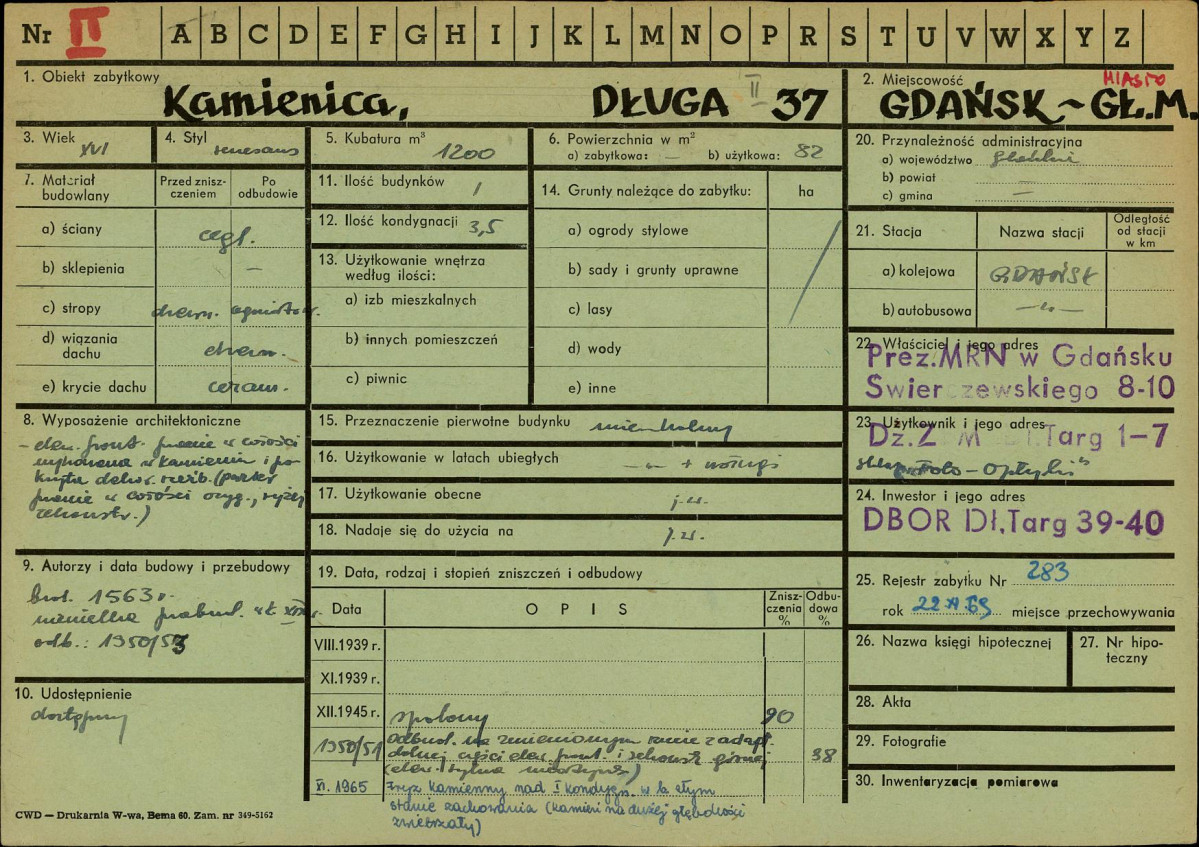 Nr II A B C D E F G H I J K L M N O P R S T U V W X Y Z
1. Obiekt zabytkowy
Kamienica, DŁUGA II 37
2. Miejscowość MIASTO
GDAŃSK ~ GŁ.M.
3. Wiek XVI
4. Styl renesans
5. Kubatura m³ 1200
6. Powierzchnia w m²
a) zabytkowa: — b) użytkowa: 82
7. Materiał budowlany
Przed zniszczeniem
Po odbudowie
a) ściany cegł.
b) sklepienia —
c) stropy drewn. ogniotrw.
d) wiązania dachu drewn.
e) krycie dachu ceram.
8. Wyposażenie architektoniczne
- elew. front. prawie w całości
wykonana w kamieniu i po-
kryta dekor. rzeźb. (parter
prawie w całości oryg., wyżej
rekonstr.)
9. Autorzy i data budowy i przebudowy
bud. 1563 r.
niewielka przebud.
odb.: 1950/53
10. Udostępnienie
dostępny
11. Ilość budynków 1
12. Ilość kondygnacji 3,5
13. Użytkowanie wnętrza według ilości:
a) izb mieszkalnych
b) innych pomieszczeń
c) piwnic
14. Grunty należące do zabytku: ha
a) ogrody stylowe
b) sady i grunty uprawne
c) lasy
d) wody
e) inne
15. Przeznaczenie pierwotne budynku mieszkalny
16. Użytkowanie w latach ubiegłych —„— + usługi
17. Użytkowanie obecne j.w.
18. Nadaje się do użycia na j.w.
19. Data, rodzaj i stopień zniszczeń i odbudowy
Data
OPIS
Zniszczenia %
Odbudowa %
VIII.1939 r.
XI.1939 r.
XII.1945 r. spalony 90
1950/51 Odbud. na zmienionym rzucie z adapt.
dolnej części elew. front. i rekonstr. górnej 38
(elew. tylna
XI. 1965 Fryz kamienny nad I kondygn. w b. złym
stanie zachowania (kamień na dużej głębokości
zwietrzały)
20. Przynależność administracyjna
a) województwo gdańskie
b) powiat
c) gmina —
21. Stacja
Nazwa stacji
Odległość od stacji w km
a) kolejowa GDAŃSK
b) autobusowa —„—
22. Właściciel i jego adres
Prez. MRN w Gdańsku
Świerczewskiego 8-10
23. Użytkownik i jego adres
Targ 1-7
sklep „Foto-Optyki”
24. Inwestor i jego adres
DBOR Dł. Targ 39-40
25. Rejestr zabytku Nr 283
rok miejsce przechowywania
26. Nazwa księgi hipotecznej
27. Nr hipoteczny
28. Akta
29. Fotografie
30. Inwentaryzacja pomiarowa
CWD — Drukarnia W-wa, Bema 60. Zam. nr 349-5162